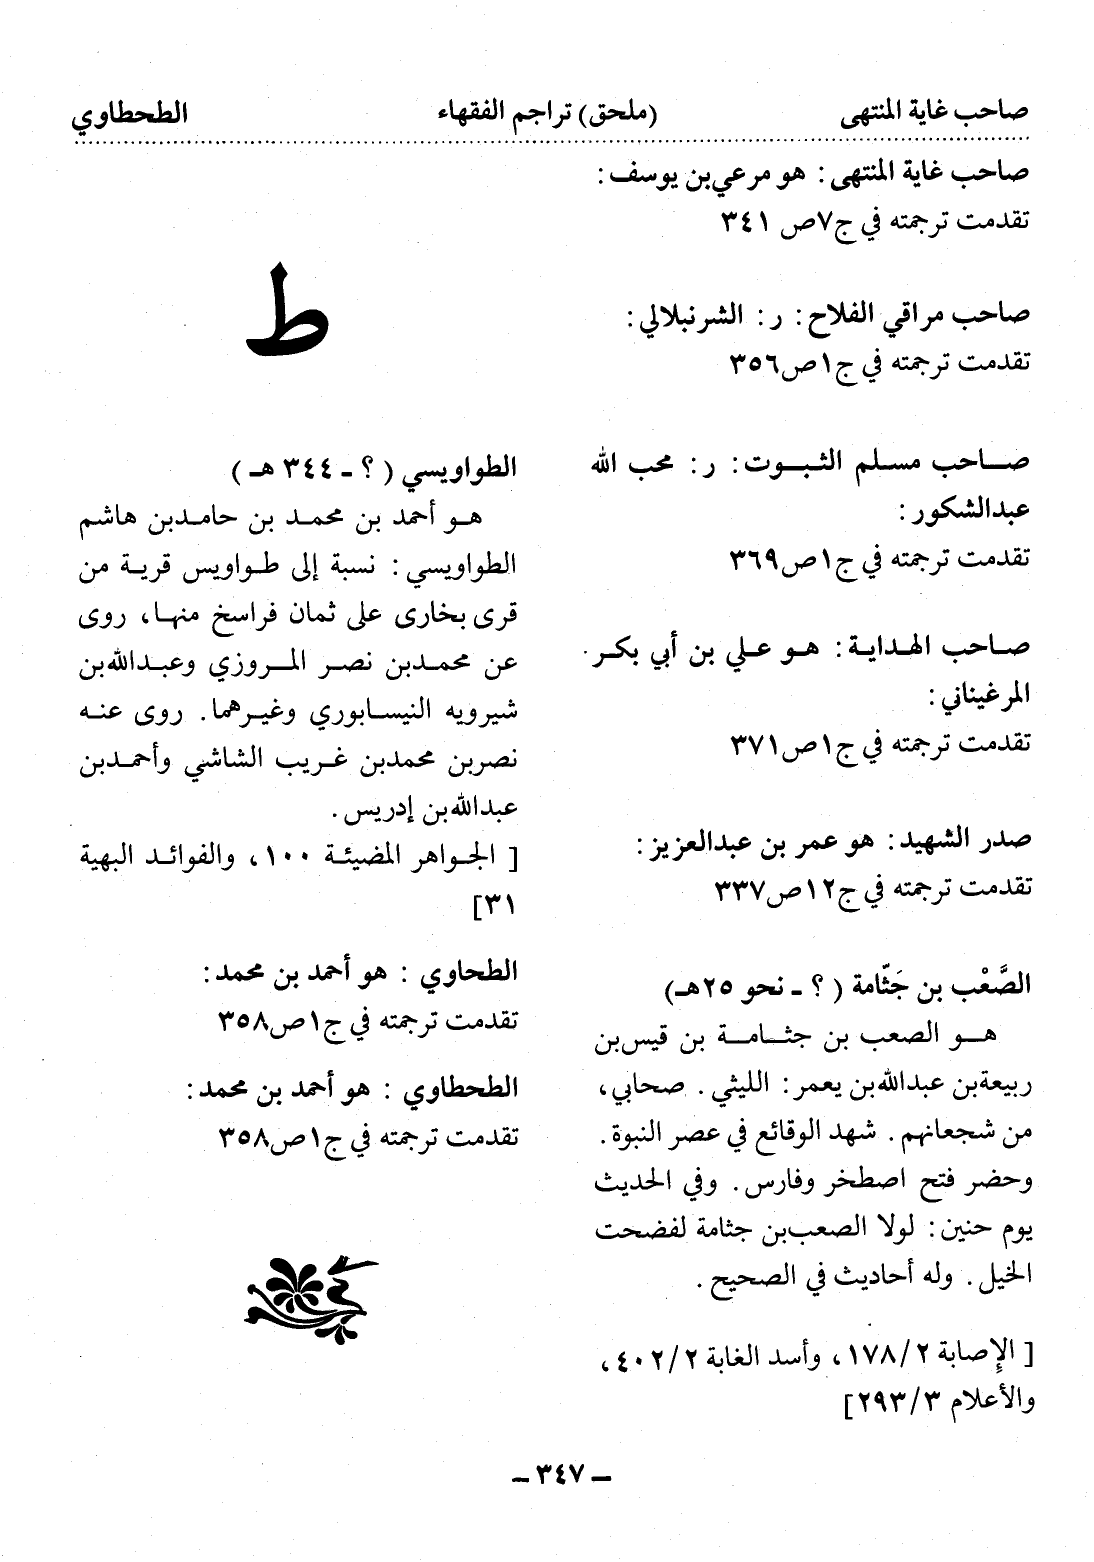 صاحب غاية المنتهى (ملحق) تراجم الفقهاء الطحطاوي
صاحب غاية المنتهى : هو مرعي بن يوسف :
تقدمت ترجمته في ج٧ص ٣٤١
صاحب مراقي الفلاح : ر : الشرنبلالي :
تقدمت ترجمته في ج١ص٣٥٦
صاحب مسلم الثبوت : ر : محب الله
عبدالشكور :
تقدمت ترجمته في ج١ص٣٦٩
صاحب الهداية : هو علي بن أبي بكر
المرغيناني :
تقدمت ترجمته في ج١ص٣٧١
صدر الشهيد : هو عمر بن عبدالعزيز :
تقدمت ترجمته في ج١٢ص٣٣٧
الصَّعْب بن جَثّامة ( ؟ - نحو ٢٥هـ)
هو الصعب بن جثامة بن قيس بن
ربيعة بن عبدالله بن يعمر : الليثي . صحابي ،
من شجعانهم . شهد الوقائع في عصر النبوة .
وحضر فتح اصطخر وفارس . وفي الحديث
يوم حنين : لولا الصعب بن جثامة لفضحت
الخيل . وله أحاديث في الصحيح .
[ الإصابة ٢/ ١٧٨ ، وأسد الغابة ٢/ ٤٠٢ ،
والأعلام ٣/ ٢٩٣]
ط
الطواويسي ( ؟ - ٣٤٤ هـ )
هو أحمد بن محمد بن حامد بن هاشم
الطواويسي : نسبة إلى طواويس قرية من
قرى بخارى على ثمان فراسخ منها ، روى
عن محمد بن نصر المروزي وعبدالله بن
شيرويه النيسابوري وغيرهما . روى عنه
نصر بن محمد بن غريب الشاشي وأحمد بن
عبدالله بن إدريس .
[ الجواهر المضيئة ١٠٠ ، والفوائد البهية
٣١]
الطحاوي : هو أحمد بن محمد :
تقدمت ترجمته في ج١ص٣٥٨
الطحطاوي : هو أحمد بن محمد :
تقدمت ترجمته في ج١ص٣٥٨
- ٣٤٧ -